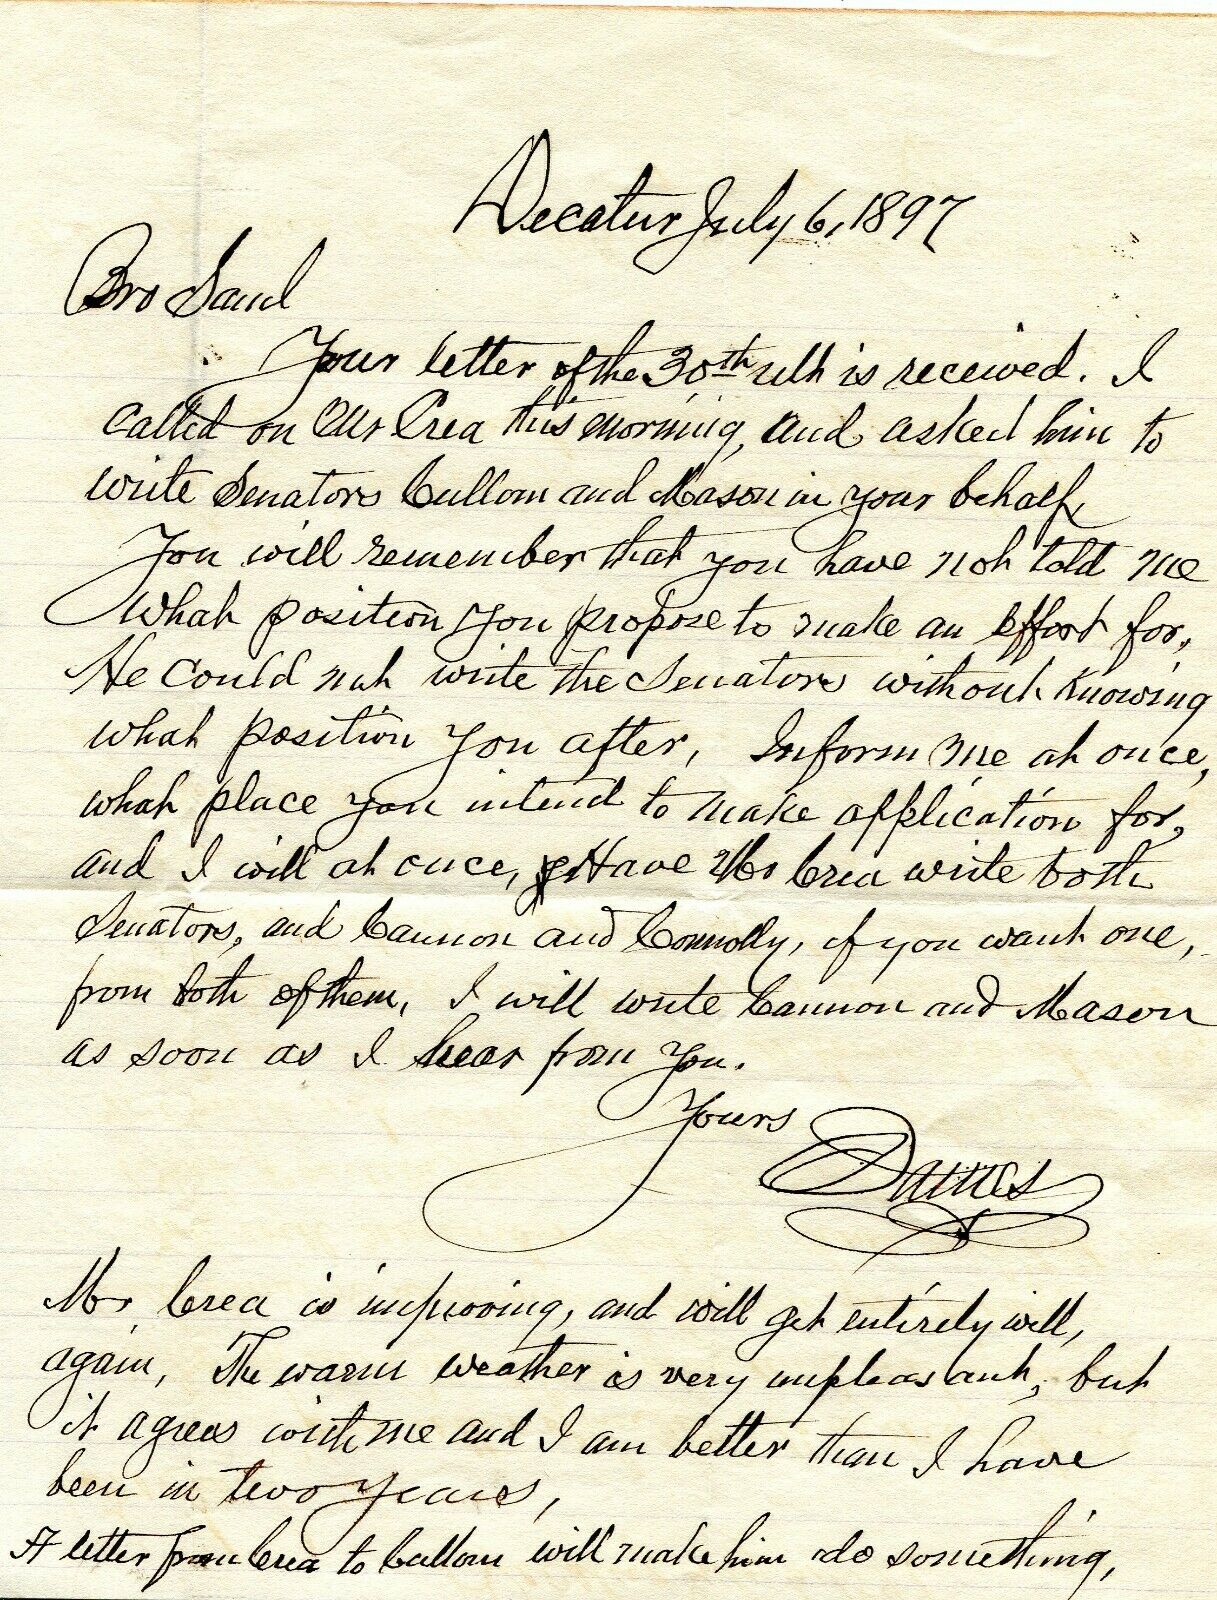 Decatur July 6, 1897
Bro Saml
Your letter of the 30th ult is received. I
called on Mr Crea this morning, and asked him to
write Senators Cullom and Mason in your behalf,
You will remember that you have not told me
what position you propose to make an effort for,
He could not write the Senators without knowing
what position you after, Inform me at once,
what place you intend to make application for,
and I will at once, Have Mr Crea write both
Senators, and Cannon and Connolly, if you want one,
from both of them, I will write Cannon and Mason
as soon as I hear from you.
Yours
James
Mr Crea is improving, and will get entirely well,
again, The warm weather is very unpleasant, but
it agrees with me and I am better than I have
been in two years,
A letter from Crea to Cullom will make him do something,